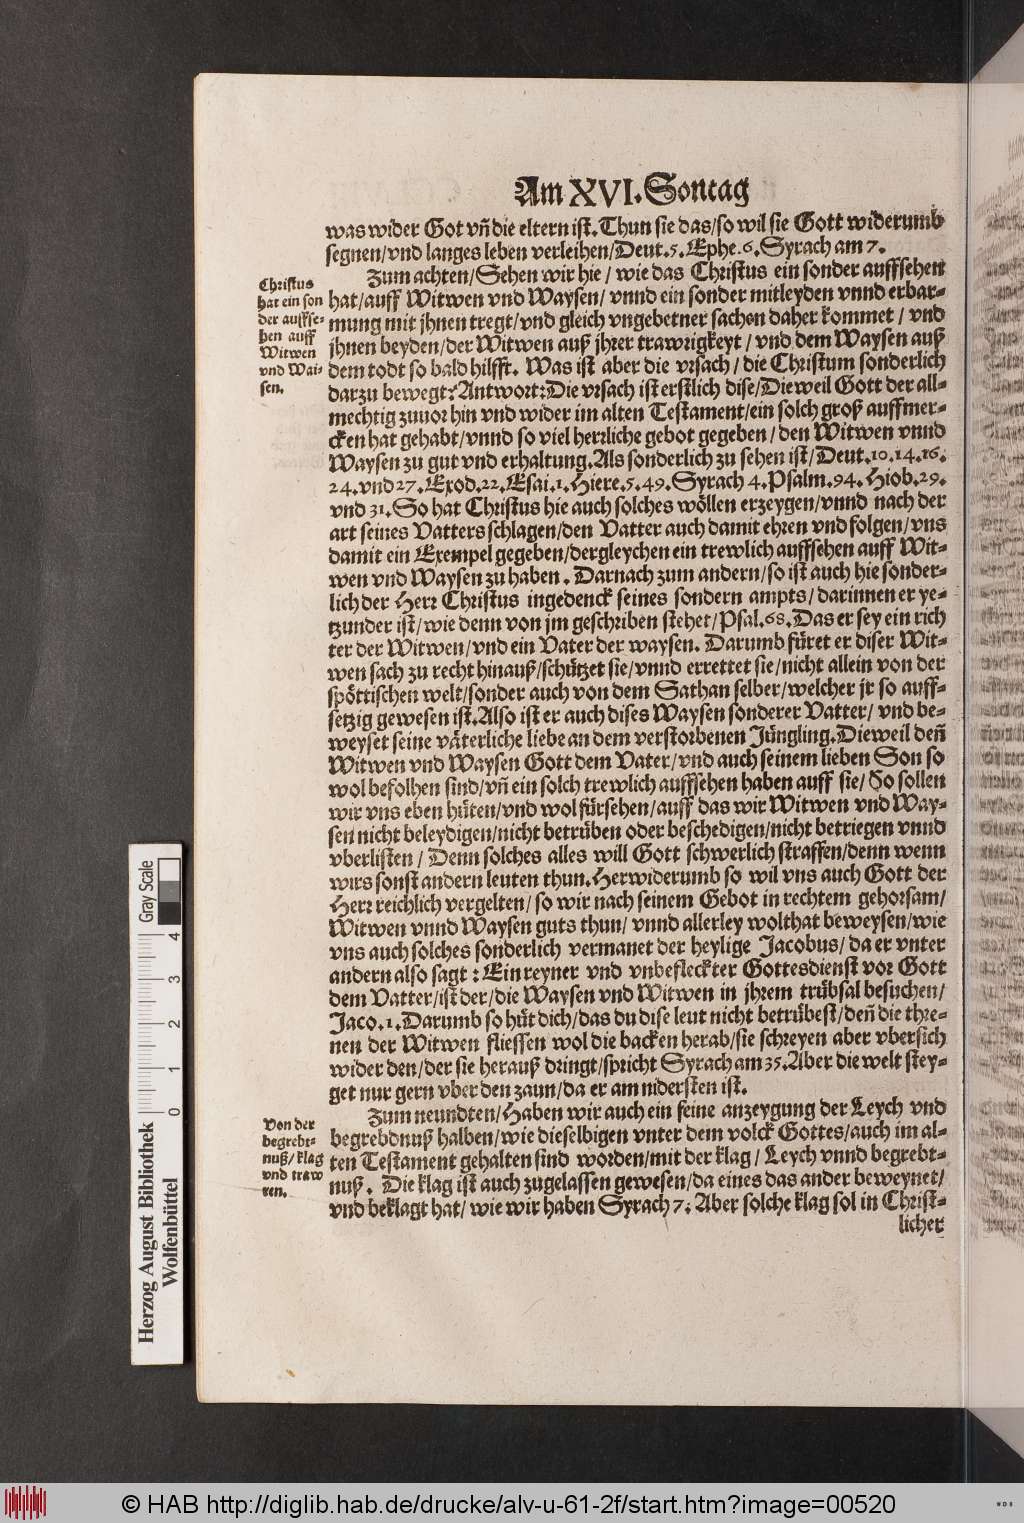 Am XVI. Sontag
was wider Got vñ die eltern ist. Thun sie das/so wil sie Gott widerumb
segnen/vnd langes leben verleihen/Deut.5. Ephe.6. Syrach am 7.
Zum achten/Sehen wir hie/ wie das Christus ein sonder auffsehen
hat/auff Witwen vnd Waysen/ vnnd ein sonder mitleyden vnnd erbar-
mung mit jhnen tregt/vnd gleich vngebetner sachen daher kommet/ vnd
jhnen beyden/der Witwen auß jhrer trawrigkeyt/ vnd dem Waysen auß
dem todt so bald hilfft. Was ist aber die vrsach/ die Christum sonderlich
darzu bewegt? Antwort: Die vrsach ist erstlich dise/Dieweil Gott der all-
mechtig zuuor hin vnd wider im alten Testament/ein solch groß auffmer-
cken hat gehabt/vnnd so viel herrliche gebot gegeben/ den Witwen vnnd
Waysen zu gut vnd erhaltung. Als sonderlich zu sehen ist/Deut.10.14.16.
24. vnd 27. Exod.22. Esai.1. Hiere.5.49. Syrach 4. Psalm.94. Hiob.29.
vnd 31. So hat Christus hie auch solches wöllen erzeygen/vnnd nach der
art seines Vatters schlagen/den Vatter auch damit ehren vnd folgen/vns
damit ein Exempel gegeben/dergleychen ein trewlich auffsehen auff Wit-
wen vnd Waysen zu haben. Darnach zum andern/so ist auch hie sonder-
lich der Herr Christus ingedenck seines sondern ampts/darinnen er ye-
tzunder ist/wie denn von jm geschriben stehet/Psal.68. Das er sey ein rich
ter der Witwen/vnd ein Vater der waysen. Darumb füret er diser Wit-
wen sach zu recht hinauß/schützet sie/vnnd errettet sie/nicht allein von der
spöttischen welt/sonder auch von dem Sathan selber/welcher jr so auff-
setzig gewesen ist. Also ist er auch dises Waysen sonderer Vatter/ vnd be-
weyset seine väterliche liebe an dem verstorbenen Jüngling. Dieweil deñ
Witwen vnd Waysen Gott dem Vater/vnd auch seinem lieben Son so
wol befolhen sind/vñ ein solch trewlich auffsehen haben auff sie/ So sollen
wir vns eben hüten/vnd wol fürsehen/auff das wir Witwen vnd Way-
sen nicht beleydigen/nicht betrüben oder beschedigen/nicht betriegen vnnd
vberlisten/ Denn solches alles will Gott schwerlich straffen/denn wenn
wirs sonst andern leuten thun. Herwiderumb so wil vns auch Gott der
Herr reichlich vergelten/ so wir nach seinem Gebot in rechtem gehorsam/
Witwen vnnd Waysen guts thun/ vnnd allerley wolthat beweysen/wie
vns auch solches sonderlich vermanet der heylige Jacobus/ da er vnter
andern also sagt: Ein reyner vnd vnbefleckter Gottesdienst vor Gott
dem Vatter/ist der/die Waysen vnd Witwen in jhrem trübsal besuchen/
Jaco.1. Darumb so hüt dich/das du dise leut nicht betrübest/deñ die thre-
nen der Witwen fliessen wol die backen herab/sie schreyen aber vbersich
wider den/der sie herauß dringt/spricht Syrach am 35. Aber die welt stey-
get nur gern vber den zaun/da er am nidersten ist.
Zum neundten/Haben wir auch ein feine anzeygung der Leych vnd
begrebdnuß halben/wie dieselbigen vnter dem volck Gottes/auch im al-
ten Testament gehalten sind worden/mit der klag/ Leych vnnd begrebt-
nuß. Die klag ist auch zugelassen gewesen/da eines das ander beweynet/
vnd beklagt hat/ wie wir haben Syrach 7. Aber solche klag sol in Christ-
licher
Christus
hat ein son
der auffse-
hen auff
Witwen
vnd Wai-
sen.
Von der
begrebt-
nuß/ klag
vnd traw
ren.
Gray Scale
0 1 2 3 4
Herzog August Bibliothek
Wolfenbüttel
© HAB http://diglib.hab.de/drucke/alv-u-61-2f/start.htm?image=00520